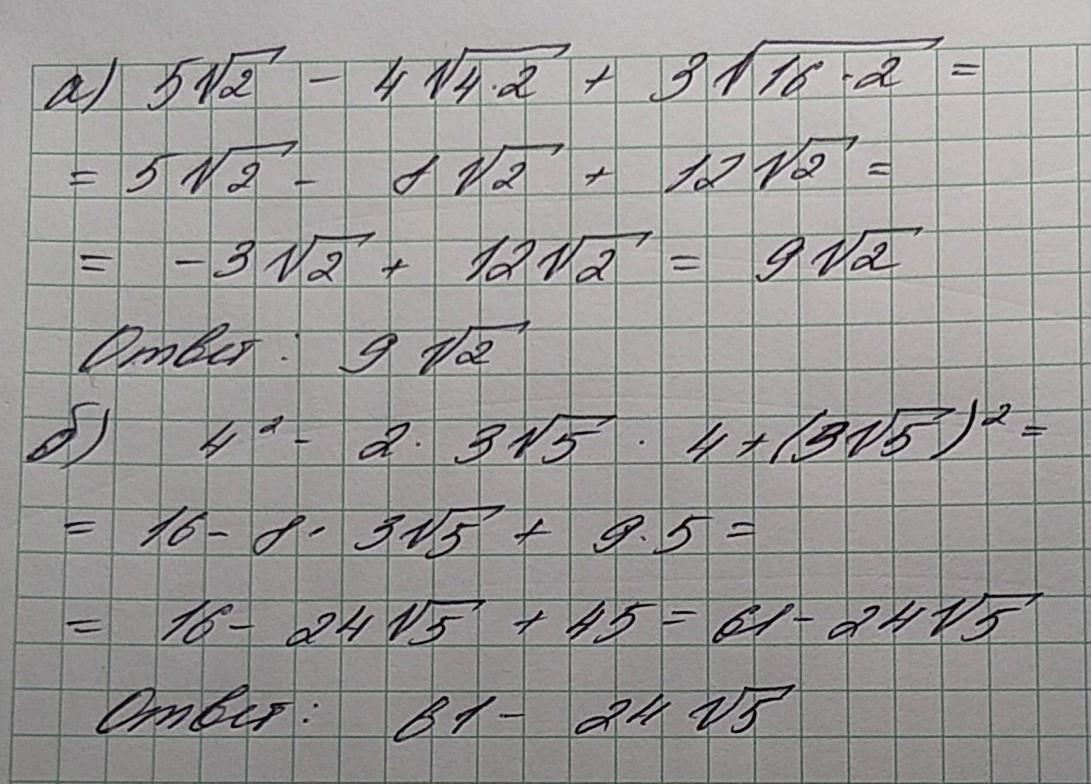 а) 5√2 - 4√4·2 + 3√16·2 =
= 5√2 - 8√2 + 12√2 =
= -3√2 + 12√2 = 9√2
Ответ: 9√2
б) 4² - 2·3√5 · 4+(3√5)² =
= 16 - 8·3√5 + 9·5 =
= 16 - 24√5 + 45 = 61 - 24√5
Ответ: 61 - 24√5